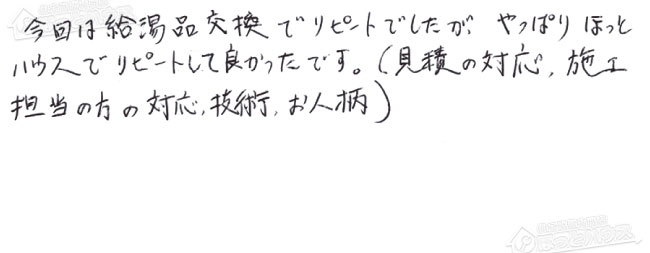 今回は給湯品交換でリピートでしたが、やっぱりほっと
ハウスでリピートして良かったです。(見積の対応、施工
担当の方の対応、技術、お人柄)